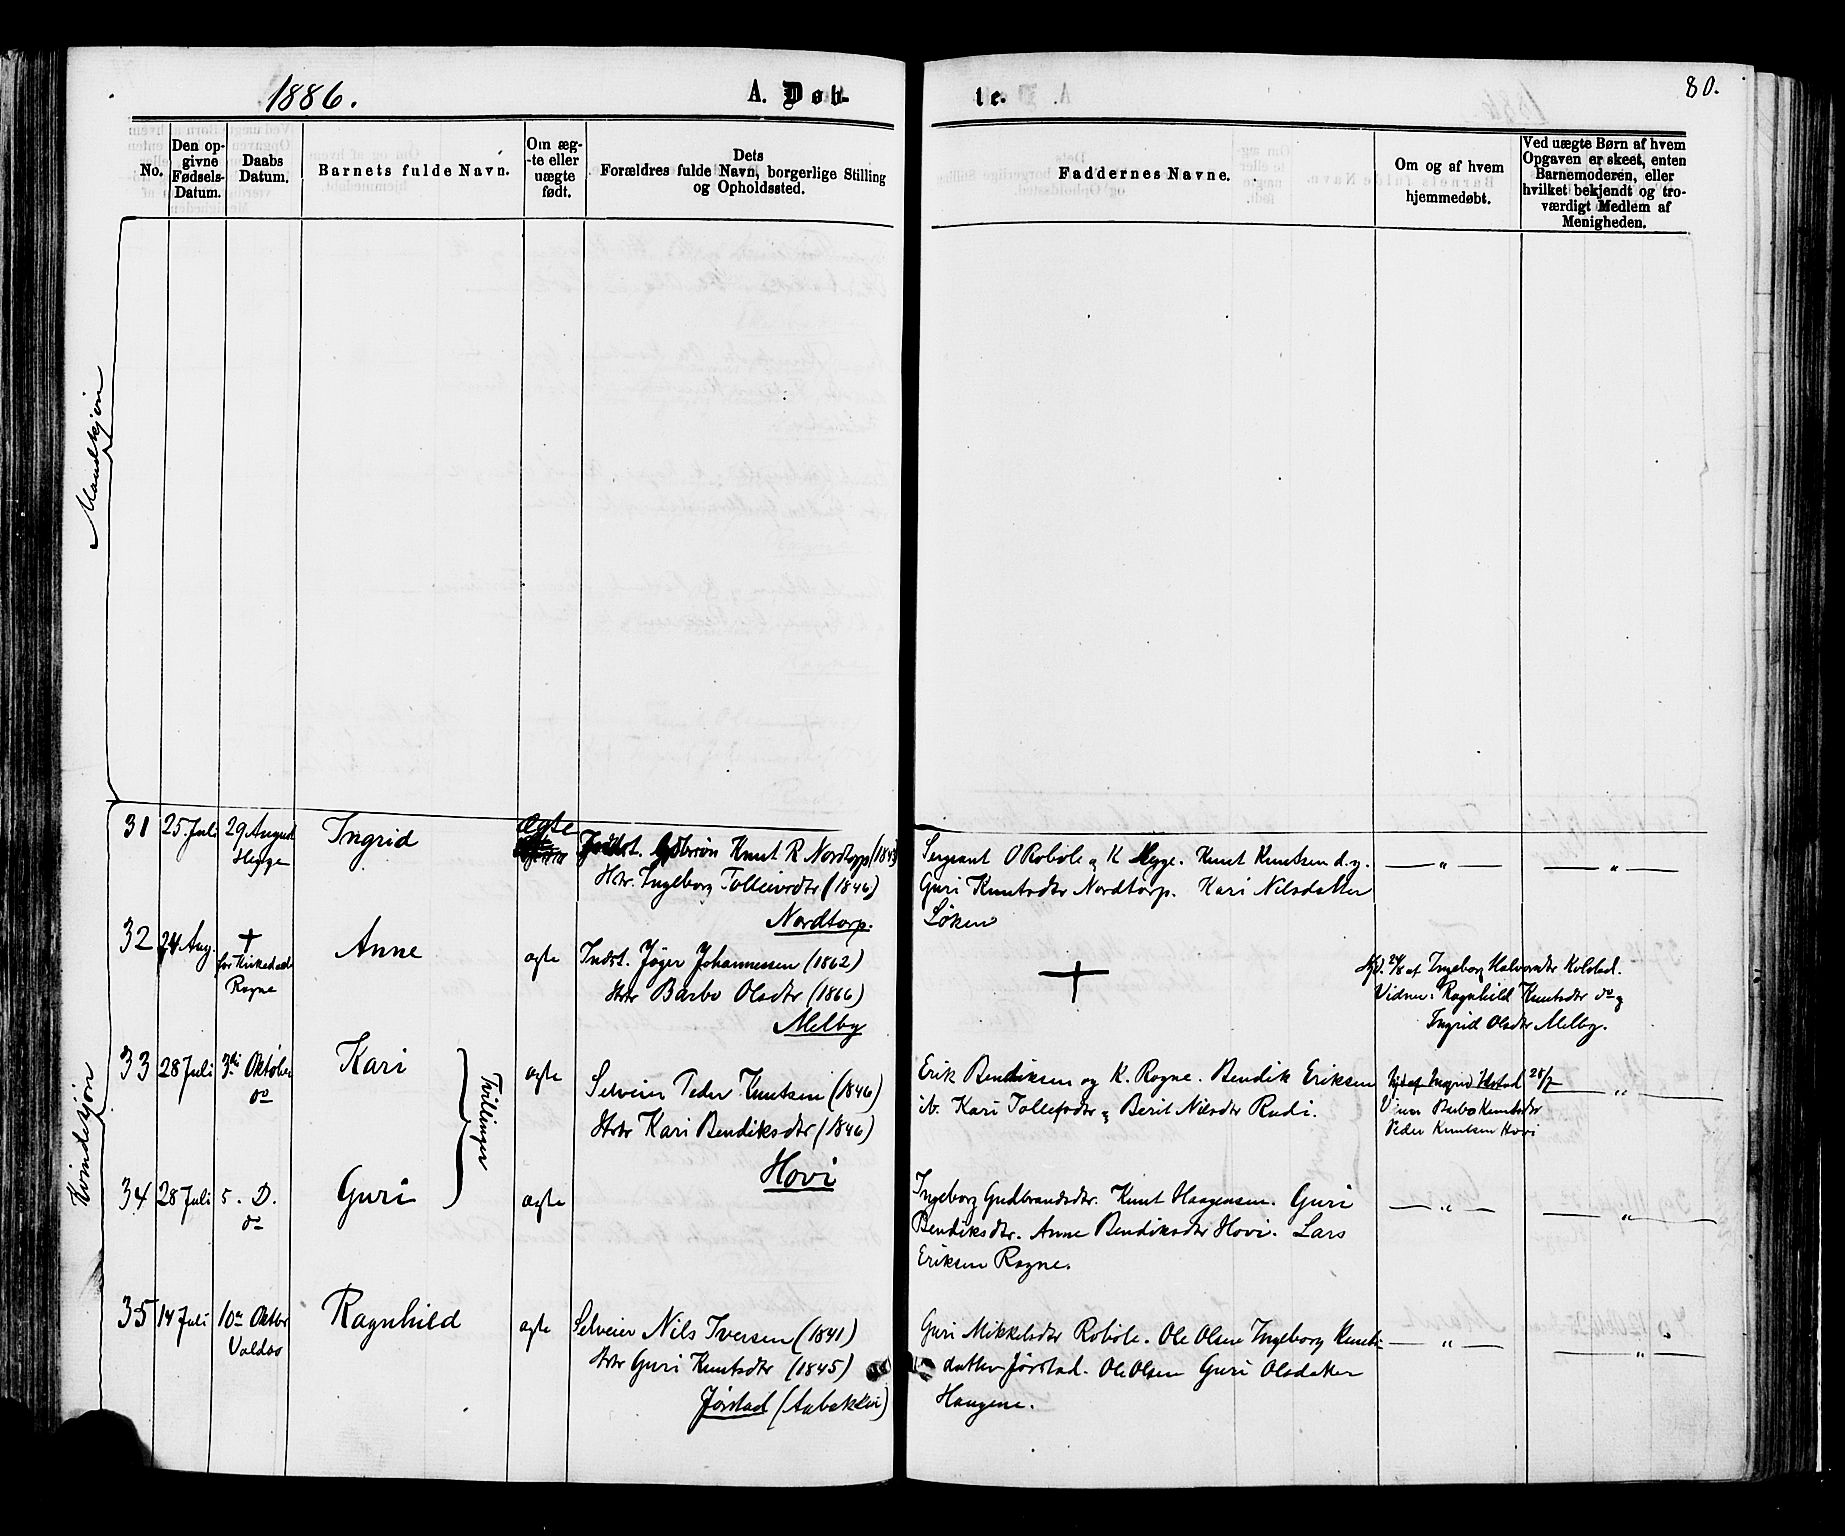 1886.
A. Døb-
te.
80.
No.
Den op-
givne
Fødsels-
Datum.
Daabs
Datum.
Barnets fulde Navn.
Om æg-
te eller
uægte
født.
Dets
Forældres fulde Navn, borgerlige Stilling
og Opholdssted.
Faddernes Navne.
Om og af hvem
hjemmedøbt.
Ved uægte Børn af hvem
Opgaven er skeet, enten
Barnemoderen, eller
hvilket bekjendt og tro-
værdigt Medlem af
Menigheden.
Mandkjøn
Kvindekjøn
31 25. Juli 29 August
Hegge
Ingrid
ægte
Knut K Nordtorp (1843
Hstr. Ingeborg Tolleivsdtr (1846)
Nordtorp.
Sergeant O Robøle & K Hegge. Knut Knutsen d.y.
Guri Knutsdtr Nordtorp. Kari Nilsdatter
Løken
— " —
— " —
32 24 Aug. †
før Kirkedaab
Rogne
Anne
ægte
Indst. Jøger Johannessen (1862)
Hstr Barbo Olsdtr (1866)
Melby
†
Hjd. 24/8 af Ingeborg Halvorsdtr Kolstad.
Vidner: Ragnhild Knutsdtr do &
Ingrid Olsdtr Melby.
33 28 Juli 3die Oktober
do
Kari
Tvillinger
ægte
Selveier Peder Knutsen (1846)
Hstr Kari Bendiksdtr (1846)
Hovi
Erik Bendiksen og K. Rogne. Bendik Eriksen
ib. Kari Tollefsdtr & Berit Nilsdtr Rudi.
Hjd af Ingrid 28/7
Barbo Knutsdtr
Peder Knutsen Hovi
— " —
34 28 Juli 5. D.
do
Guri
ægte
Ingeborg Gudbrandsdtr. Knut Haagensen. Guri
Bendiksdtr. Anne Bendiksdtr Hovi. Lars
Eriksen Rogne.
— " —
— " —
35 14 Juli 10de Oktbr
Volbo
Ragnhild
ægte
Selveier Nils Iversen (1841)
Hstr Guri Knutsdtr (1845)
Jørstad (Aabakken)
Guri Mikkelsdtr Robøle. Ole Olsen Ingeborg Knuts-
datter Jørstad. Ole Olsen Guri Olsdatter
Haugene.
— " —
— " —